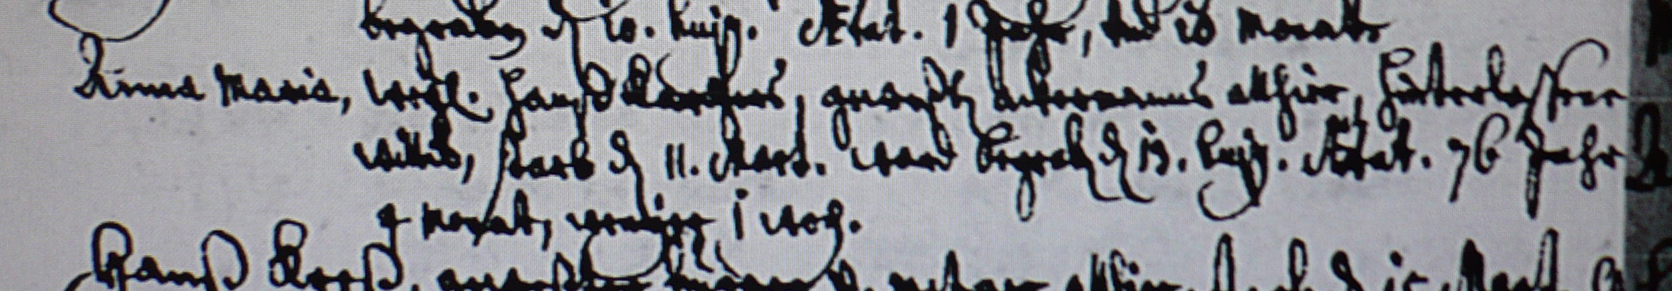 begraben d 20. hujq. Ætat. 1 Jahr, und 18 Monate
Anna Maria, weyl. Hanß Karchers, gewesten Ackermanns allhier, hinterlassene
wittib, starb d 11. Mart. ward begrab d 13. hujq. Ætat. 76 Jahr
4 Monat, weniger 1 woch.
Hanß, allhier, d 15 Mart.